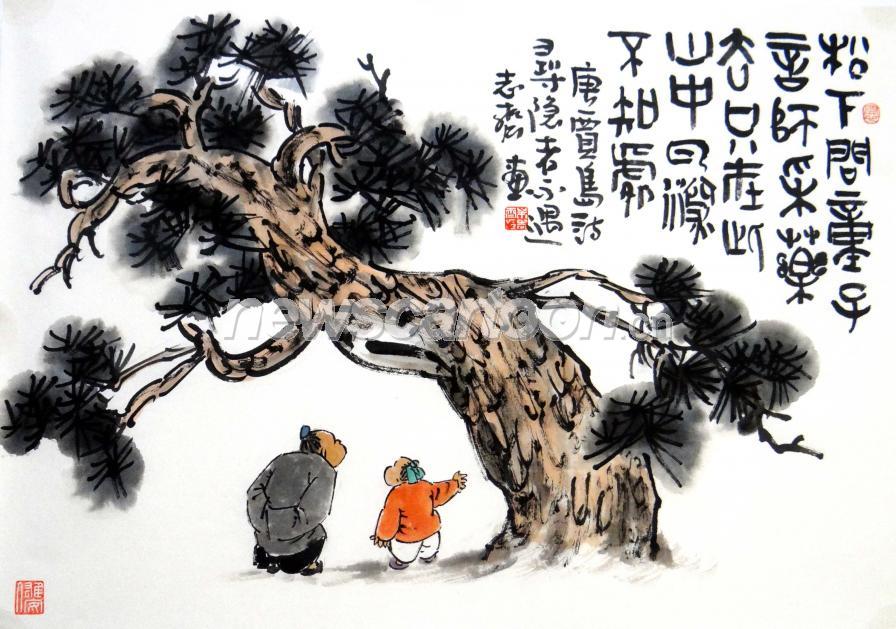 松下問童子
言師采藥
去只在此
山中云深
不知處
唐賈島詩
尋隐者不遇
newscartoon.cn